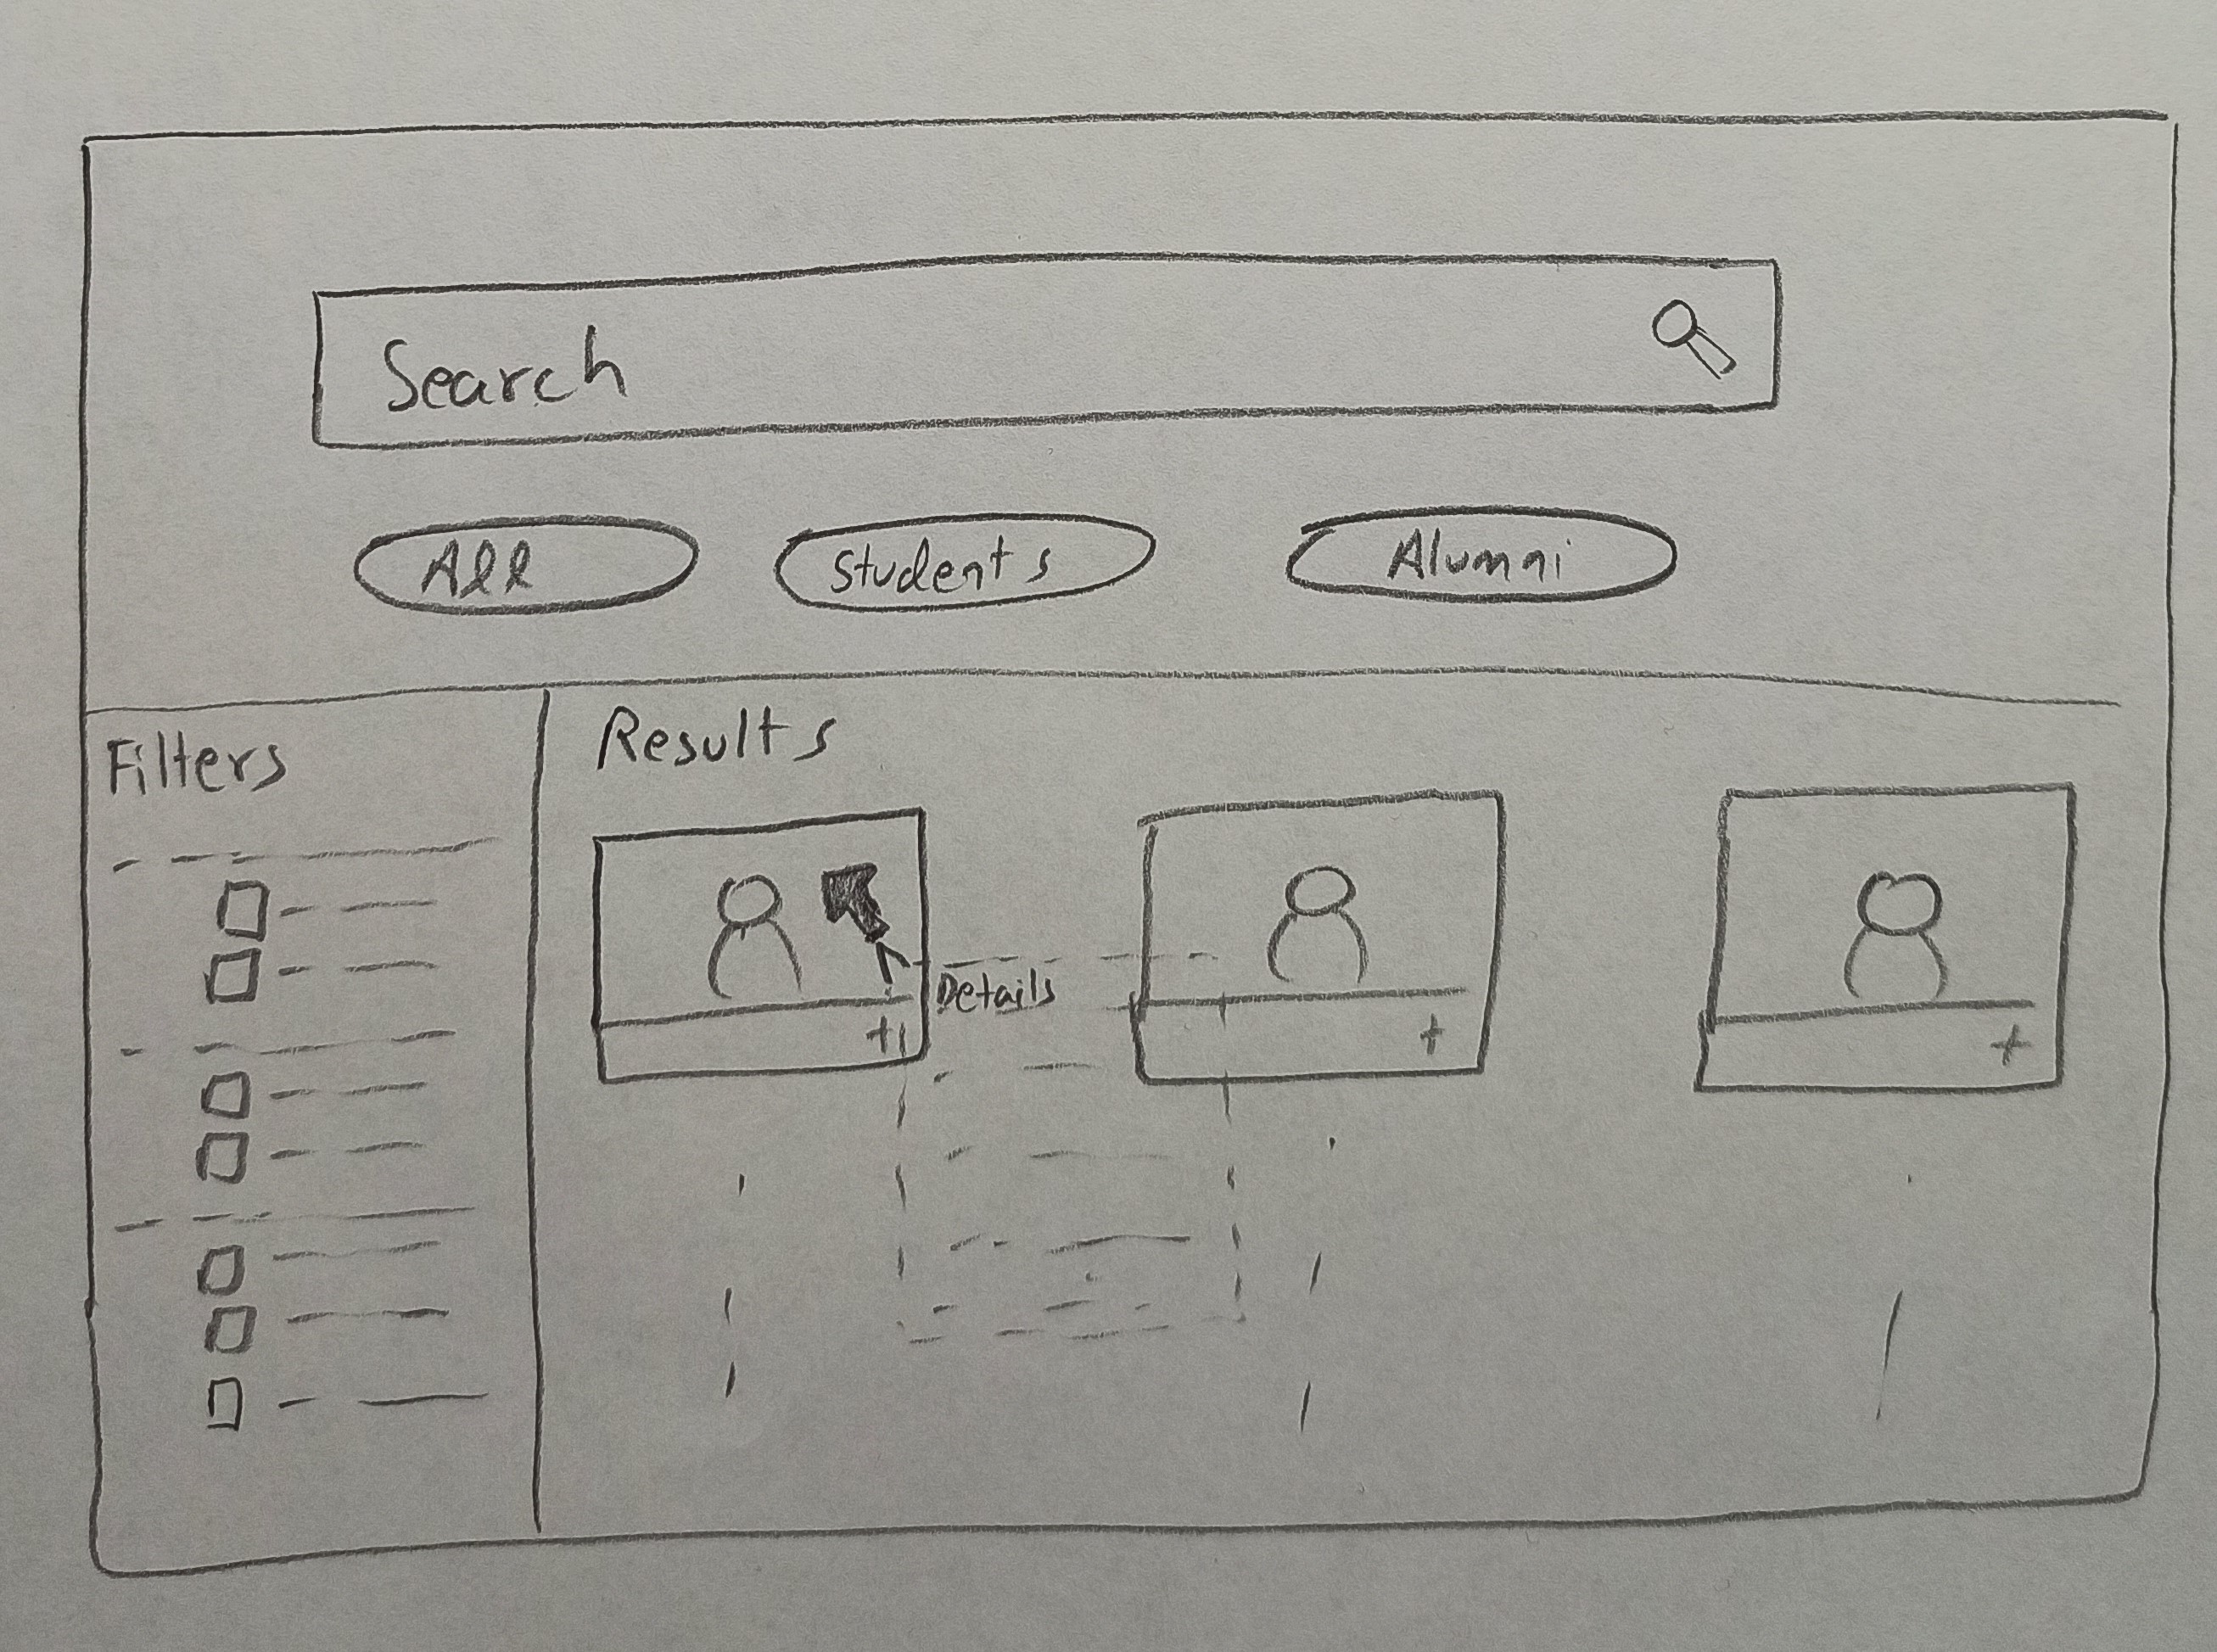 Search
All
Students
Alumni
Filters
Results
Details
+
+
+